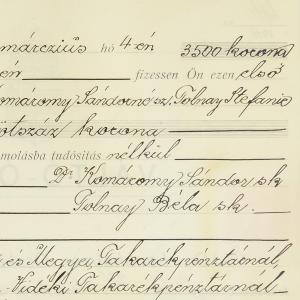 márczius hó 4-én 3500 korona
én fizessen Ön ezen első
Komáromy Sándorné sz. Tolnay Stefanie
ötszáz korona
ámolásba tudósítás nélkül
Dr Komáromy Sándor sk
Tolnay Béla sk.
és Megyei Takarékpénztárnál,
Vidéki Takarékpénztárnál